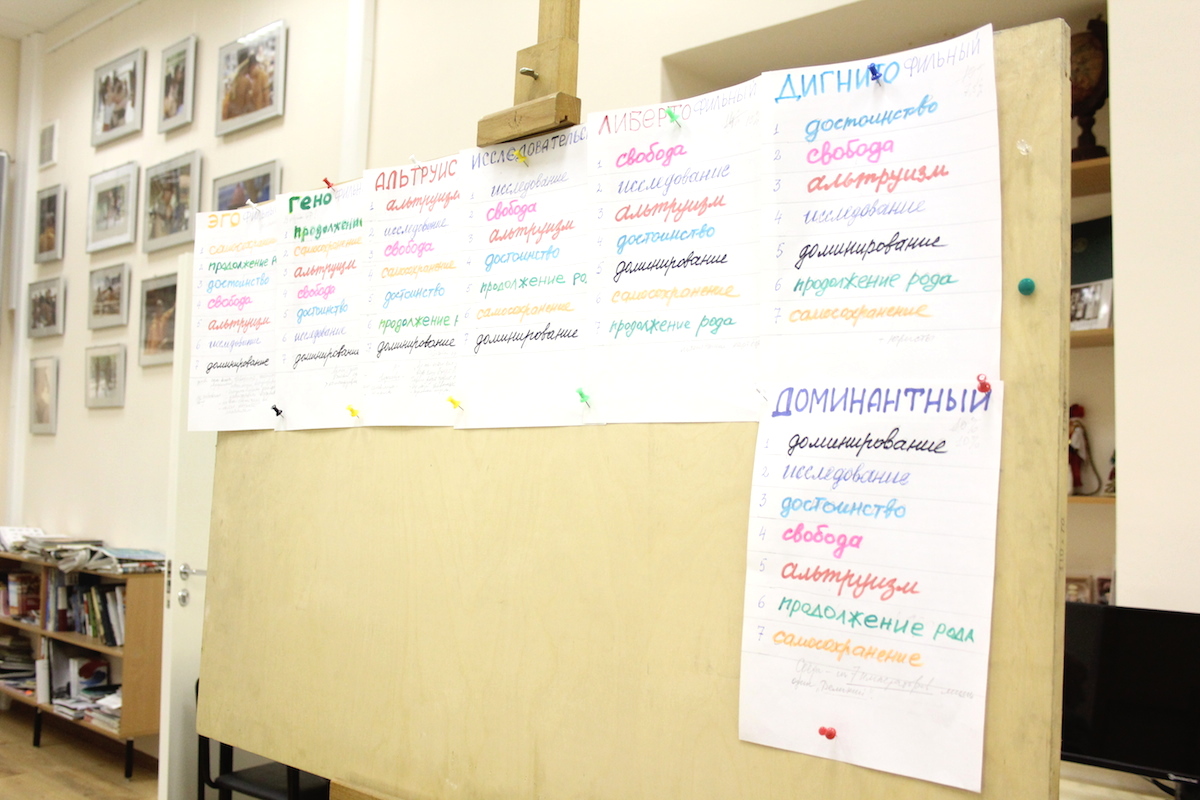 ЭГО
самосохранение
продолжение
достоинство
свобода
альтруизм
исследование
доминирование
ГЕНО
1 продолжени
самосохранение
3 альтруизм
4 свобода
5 достоинство
6 исследование
7 доминировани
АЛЬТРУИС
1 альтруизм
2 исследование
3 свобода
4 самосохранение
5 достоинство
6 продолжение р
7 доминирование
ИССЛЕДОВАТЕЛЬС
1 исследование
2 свобода
3 альтруизм
4 достоинство
5 продолжение ро
6 самосохранение
7 доминирование
ЛИБЕРТОФИЛЬНЫЙ
1 свобода
2 исследование
3 альтруизм
4 достоинство
5 доминирование
6 самосохранение
7 продолжение рода
ДИГНИТОФИЛЬНЫЙ
1 достоинство
2 свобода
3 альтруизм
4 исследование
5 доминирование
6 продолжение рода
7 самосохранение
ДОМИНАНТНЫЙ
1 доминирование
2 исследование
3 достоинство
4 свобода
5 альтруизм
6 продолжение рода
7 самосохранение